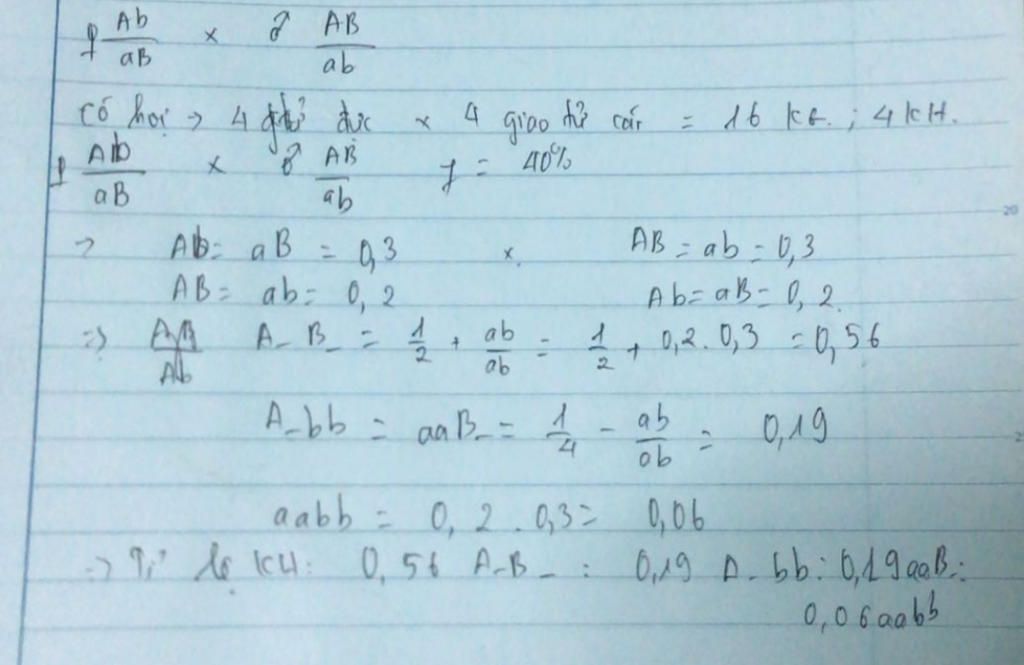 ♀ Ab/aB × ♂ AB/ab
Có hai → 4 gtử đực × 4 giao tử cái = 16 KG.; 4 KH.
♀ Ab/aB × ♂ AB/ab f = 40%
→ Ab = aB = 0,3 × AB = ab = 0,3
AB = ab = 0,2 Ab = aB = 0,2.
=> AB/Ab A_B_ = 1/2 + ab/ab = 1/2 + 0,2.0,3 = 0,56
A_bb = aaB_ = 1/4 - ab/ab = 0,19
aabb = 0,2.0,3 = 0,06
=> Tỉ lệ KH: 0,56 A_B_ : 0,19 A_bb : 0,19 aaB_ :
0,06 aabb